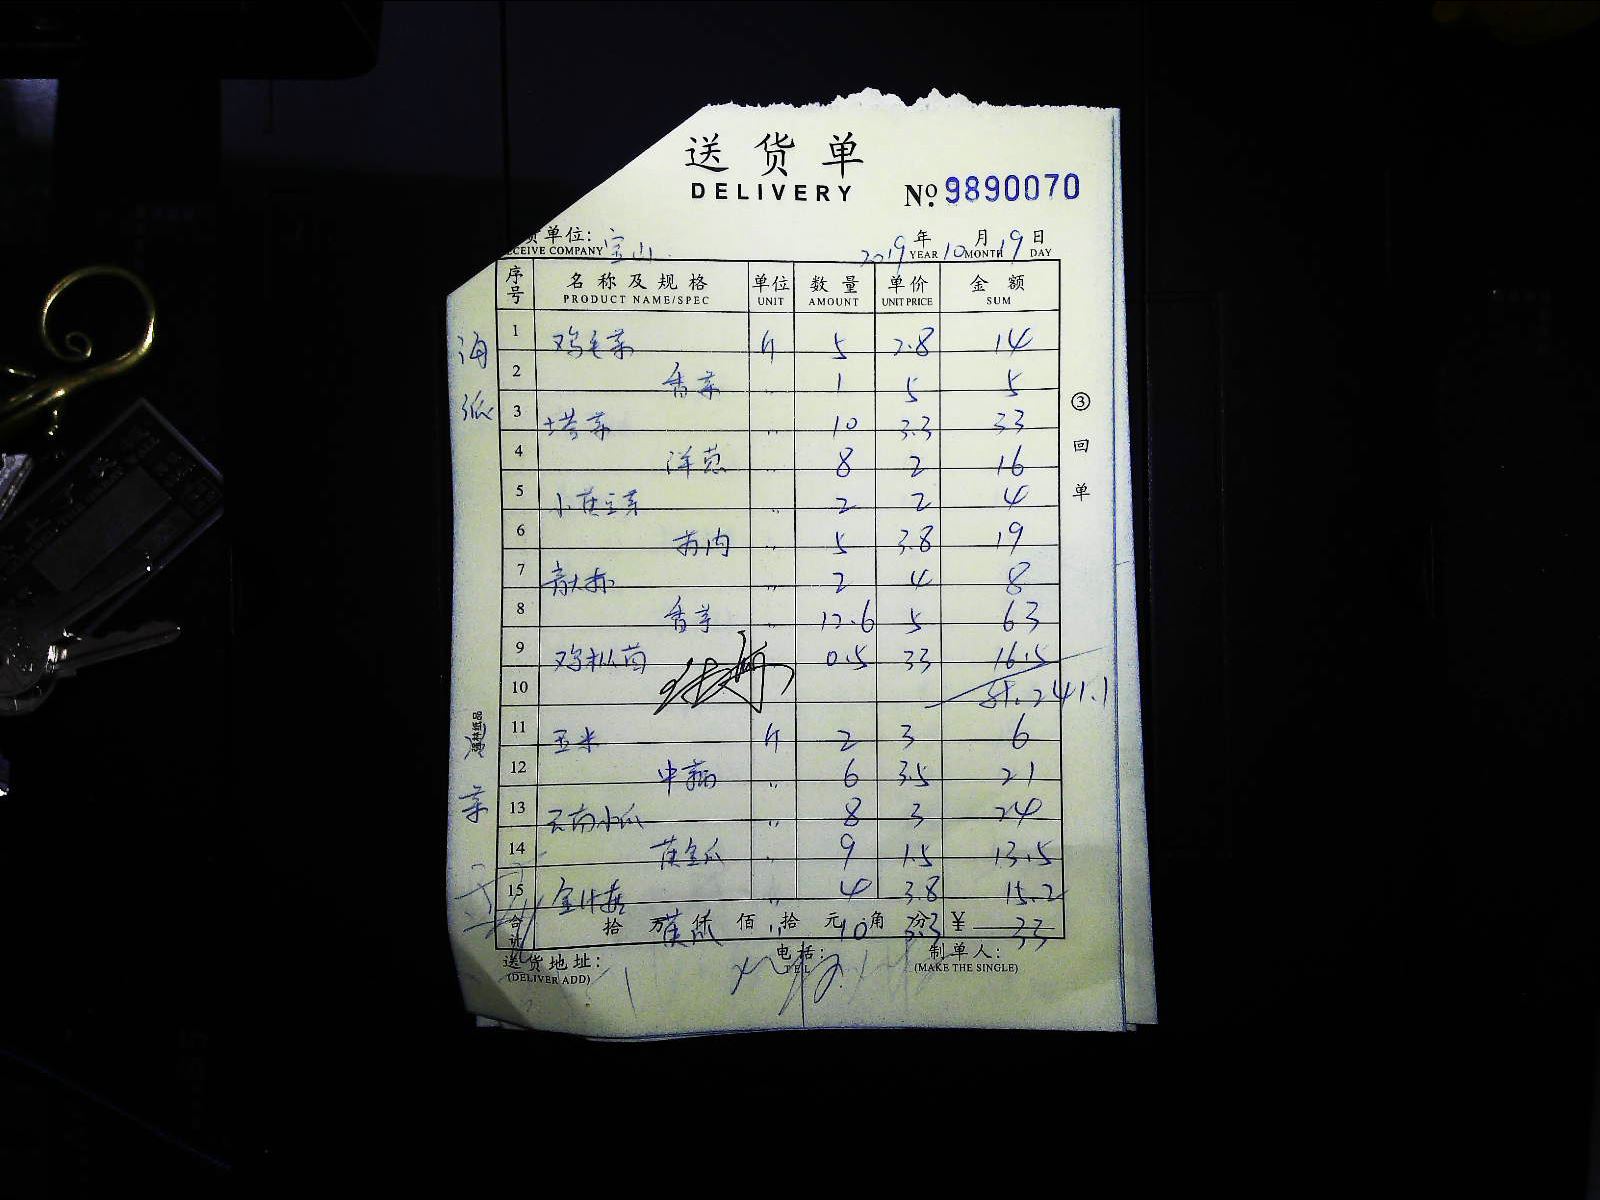 送货单
DELIVERY
No. 9890070
货单位: 宝山
CEIVE COMPANY
2019 年 10 月 19 日
YEAR MONTH DAY
序号 名称及规格 单位 数量 单价 金额
PRODUCT NAME/SPEC UNIT AMOUNT UNIT PRICE SUM
1 鸡毛菜 斤 5 2.8 14
2 香菜 〃 1 5 5
3 塔菜 〃 10 3.3 33
4 洋葱 〃 8 2 16
5 小黄豆芽 〃 2 2 4
6 〃 5 3.8 19
7 〃 2 4 8
8 香芋 〃 12.6 5 63
9 鸡枞菌 0.5 33 16.5
10 241.1
11 玉米 斤 2 3 6
12 〃 6 3.5 21
13 云南小瓜 〃 8 3 24
14 黄金瓜 〃 9 1.5 13.5
15 金针菇 〃 4 3.8 15.2
合计 拾 万 仟 佰 拾 元 角 分 ¥
黄瓜 〃 10 3.3 33
送货地址: 电话: 制单人:
(DELIVER ADD) TEL (MAKE THE SINGLE)
③回单
海
菜